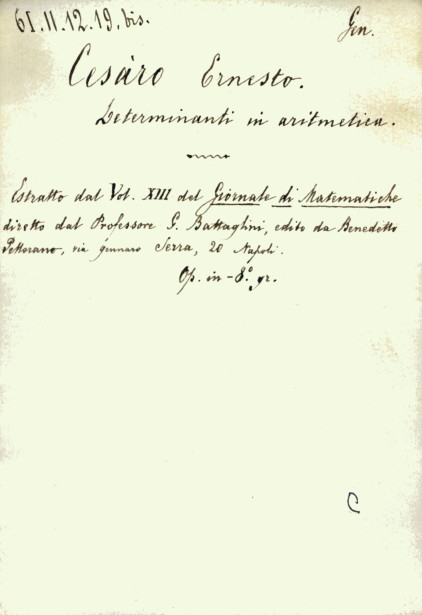 61.II.12.19.bis.
Gen.
Cesàro Ernesto.
Determinanti in aritmetica.
Estratto dal Vol. XIII del Giornale di Matematiche
diretto dal Professore G. Battaglini, edito da Benedetto
Pellerano, via Gennaro Serra, 20 Napoli.
Op. in-8.º gr.
C